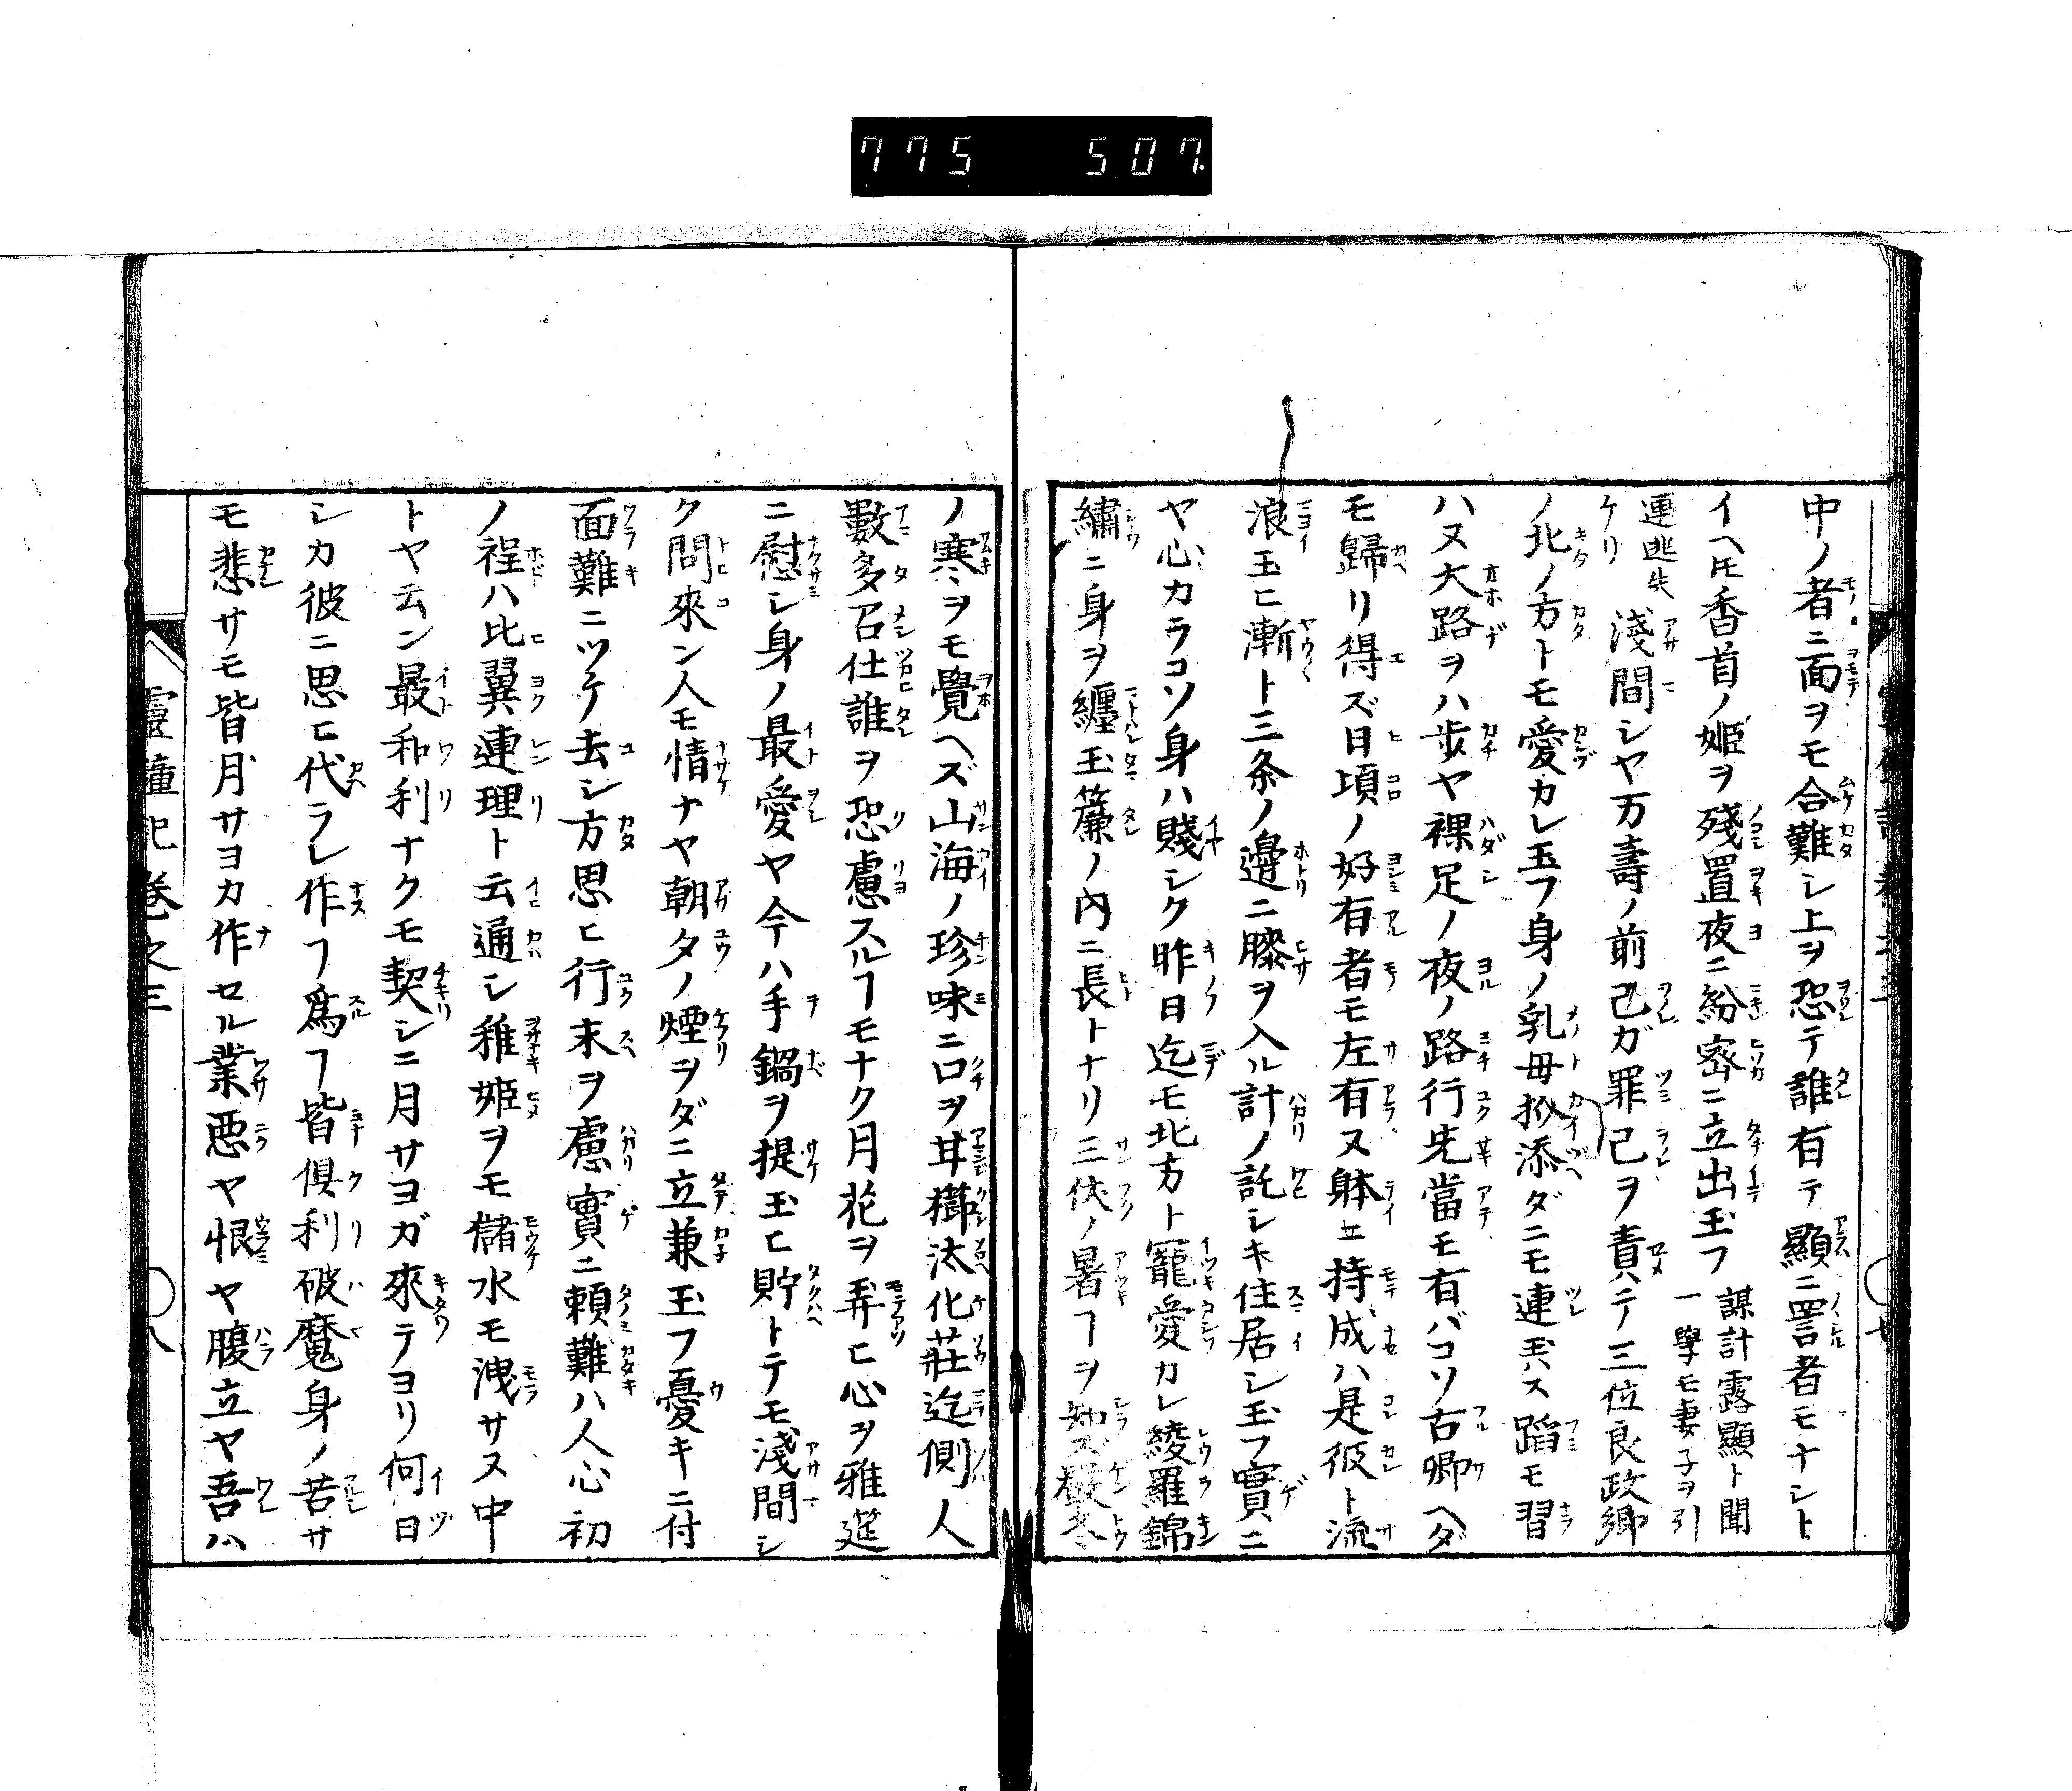 775 507
中ノ者ニ面ヲモ合難シ上ヲ恐テ誰有テ顯ニ詈者モナシト
イヘ𪜈香首ノ姫ヲ殘置夜ニ紛密ニ立出玉フ
謀計露顯ト聞
一學モ妻子ヲ引
連逃失
ケリ
淺間シヤ万壽ノ前己ガ罪己ヲ責ハテ三位良政卿
ノ北ノ方トモ愛カレ玉フ身ノ乳母扒添ダニモ連玉ハス蹈モ習
ハヌ大路ヲハ歩ヤ裸足ノ夜ノ路行先當モ有バコソ古郷ヘダ
モ歸リ得ズ日頃ノ好有者モ左有ヌ躰ニ持成ハ是彼ト流
浪玉ヒ漸ト三条ノ邊ニ膝ヲ入ル計ノ詫シキ住居シ玉フ實ニ
ヤ心カラコソ身ハ賤シク昨日迄モ北方ト寵愛カレ綾羅錦
繍ニ身ヲ纏玉簾ノ内ニ長トナリ三伏ノ暑ヿヲ知ズ嚴冬
ノ寒ヲモ覺ヘズ山海ノ珍味ニ口ヲ甘櫛汰化莊迄側人
數多召仕誰ヲ恐慮スルヿモナク月花ヲ弄ヒ心ヲ雅莚
ニ慰シ身ノ最愛ヤ今ハ手鍋ヲ提玉ヒ貯トテモ淺間シ
ク問來ン人モ情ナヤ朝夕ノ煙ヲダニ立兼玉フ憂キニ付
面難ニツケ去シ方思ヒ行末ヲ慮實ニ頼難ハ人心初
ノ程ハ比翼連理ト云通シ稚姫ヲモ儲水モ洩サヌ中
トヤ云ン最和利ナクモ契シニ月サヨガ來テヨリ何日
シカ彼ニ思ヒ代ラレ作フ爲ヿ皆倶利破魔身ノ苦サ
モ悲サモ皆月サヨカ作セル業悪ヤ恨ヤ腹立ヤ吾ハ
靈瞳記卷之三